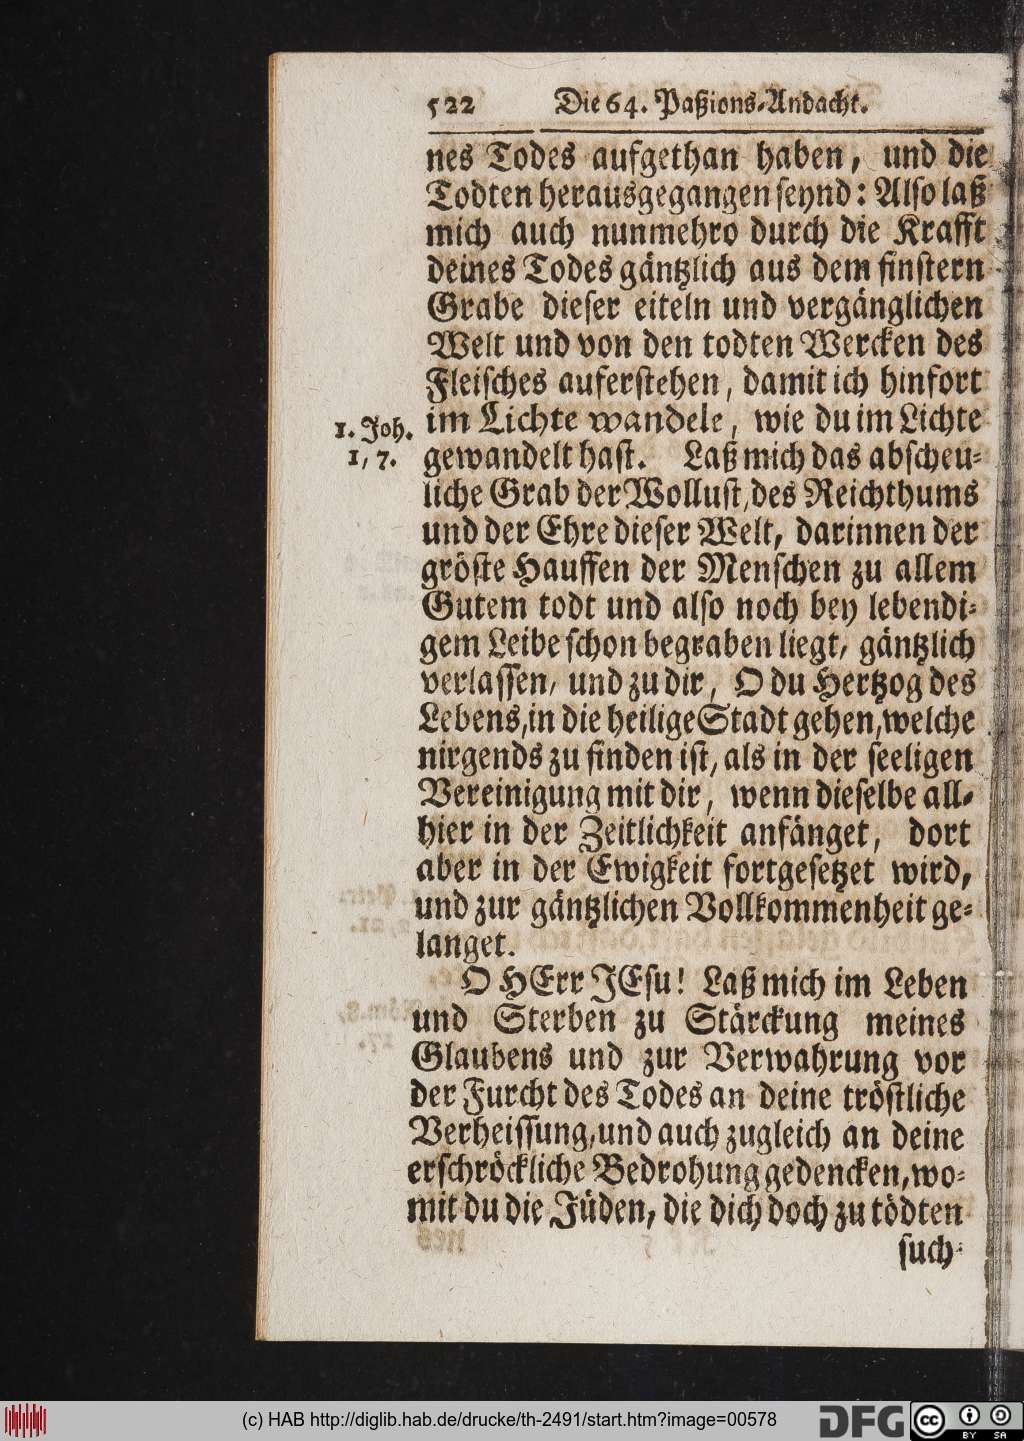 522 Die 64. Paßions-Andacht.
nes Todes aufgethan haben, und die
Todten herausgegangen seynd: Also laß
mich auch nunmehro durch die Krafft
deines Todes gäntzlich aus dem finstern
Grabe dieser eiteln und vergänglichen
Welt und von den todten Wercken des
Fleisches auferstehen, damit ich hinfort
im Lichte wandele, wie du im Lichte
1. Joh.
1, 7.
gewandelt hast. Laß mich das abscheu-
liche Grab der Wollust, des Reichthums
und der Ehre dieser Welt, darinnen der
gröste Hauffen der Menschen zu allem
Gutem todt und also noch bey lebendi-
gem Leibe schon begraben liegt, gäntzlich
verlassen, und zu dir, O du Hertzog des
Lebens, in die heilige Stadt gehen, welche
nirgends zu finden ist, als in der seeligen
Vereinigung mit dir, wenn dieselbe all-
hier in der Zeitlichkeit anfänget, dort
aber in der Ewigkeit fortgesetzet wird,
und zur gäntzlichen Vollkommenheit ge-
langet.
O HErr JEsu! Laß mich im Leben
und Sterben zu Stärckung meines
Glaubens und zur Verwahrung vor
der Furcht des Todes an deine tröstliche
Verheissung, und auch zugleich an deine
erschröckliche Bedrohung gedencken, wo-
mit du die Jüden, die dich doch zu tödten
such-
(c) HAB http://diglib.hab.de/drucke/th-2491/start.htm?image=00578
DFG
cc BY SA